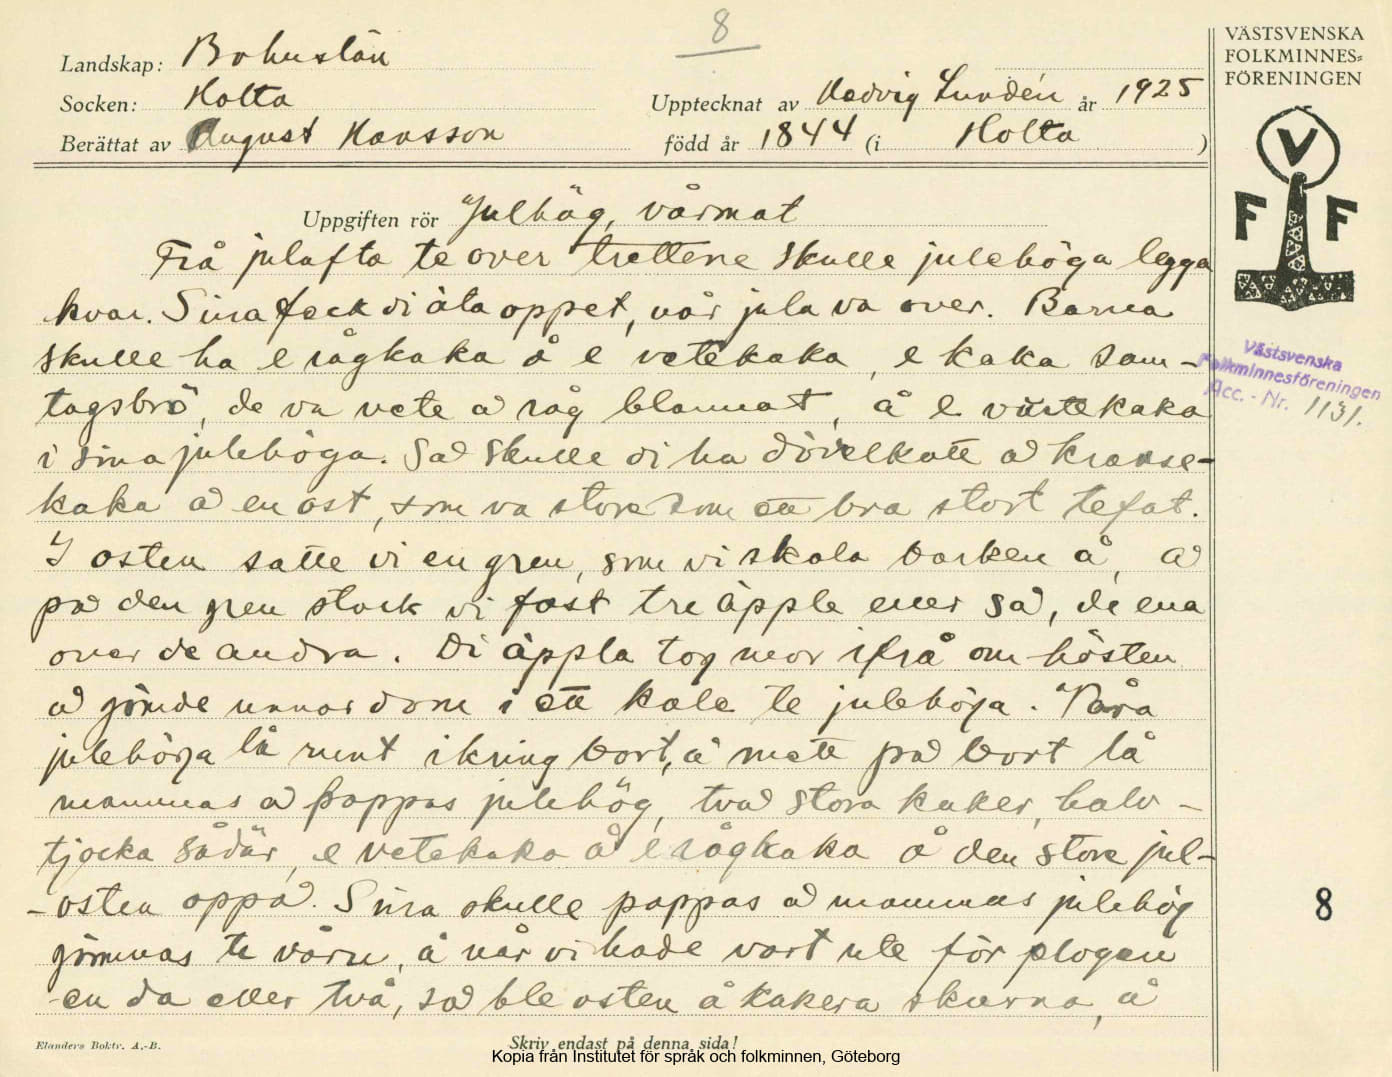 8
Landskap: Bohuslän
Socken: Holta
Berättat av August Hansson
Upptecknat av Hedvig Lundén år 1925
född år 1844 (i Holta )
VÄSTSVENSKA
FOLKMINNES=
FÖRENINGEN
V
F F
Uppgiften rör Julhög, vårmat
Frå julafta te over trettene skulle julehöga legga
kvar. Sina feck di äta oppet, når jula va over. Barna
skulle ha e rågkaka å e vetekaka, e kaka sam-
tagsbrö, de va vete å råg blannat, å e
i sina julehöga. Så skulle di ha å kranse-
kaka å en ost, som va store som ett bra stort tefat.
I osten satte vi en gren, som vi skala barken å, å
på den gren stack vi fast tre äpple eller så, de ena
over de andra. Di äppla tog mor ifrå om hösten
å gömde unnar dom i ett kale te julehöga. Våra
julehöga lå runt ikring bort, å mett på bort lå
mammas å pappas julehög, två stora kaker, halv-
tjocka sådär, e vetekaka å e rågkaka å den store jul-
-osten oppå. Sina skulle pappas å mammas julehög
gömmas te vårn, å når vi hade vart ute för plogen
en da eller två, så ble osten å kakera skurna, å
Västsvenska
Folkminnesföreningen
Acc. - Nr. 1131.
8
Elanders Boktr. A.-B.
Skriv endast på denna sida!
Kopia från Institutet för språk och folkminnen, Göteborg